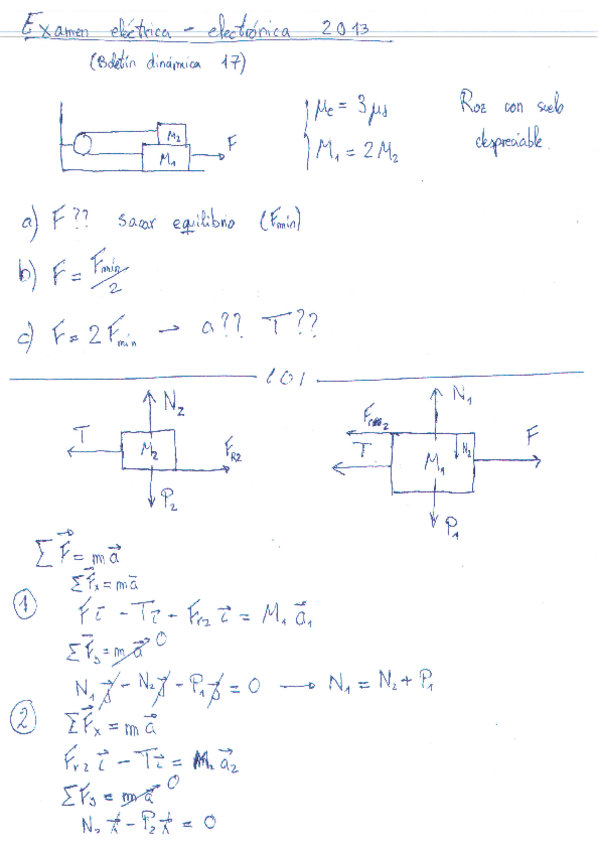 Examen eléctrica - electrónica 2013
(Boletín dinámica 17)
M₂
M₁
F
μe = 3μd
M₁ = 2M₂
Roz con suelo
despreciable
a) F?? sacar equilibrio (Fmin)
b) F = Fmin/2
c) F = 2Fmin → a?? T??
N₂
T
M₂
FR2
P₂
N₁
T
M₁
N₂
F
P₁
ΣF⃗ = ma⃗
ΣF⃗x = ma⃗
① Fi⃗ - Ti⃗ - Fr2 i⃗ = M₁a⃗₁
ΣF⃗y = ma⃗ 0
N₁j⃗ - N₂j⃗ - P₁j⃗ = 0 → N₁ = N₂ + P₁
② ΣF⃗x = ma⃗
Fr2 i⃗ - Ti⃗ = M₂a⃗₂
ΣFy = ma⃗ 0
N₂j⃗ - P₂j⃗ = 0